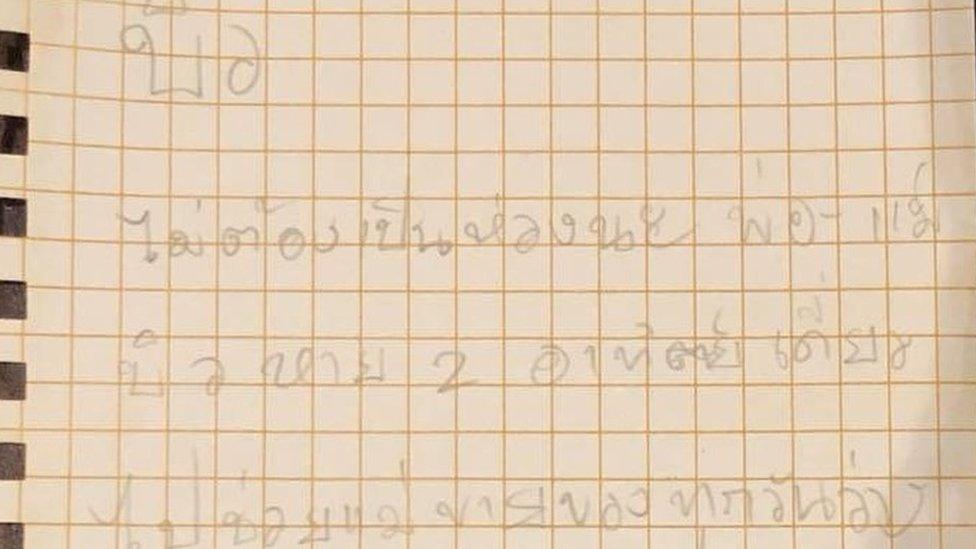 บิว
ไม่ต้องเป็นห่วงนะ พ่อ-แม่
บิวหาย 2 อาทิตย์ เดี๋ยว
ไปช่วยแม่ขายของทุกวัน